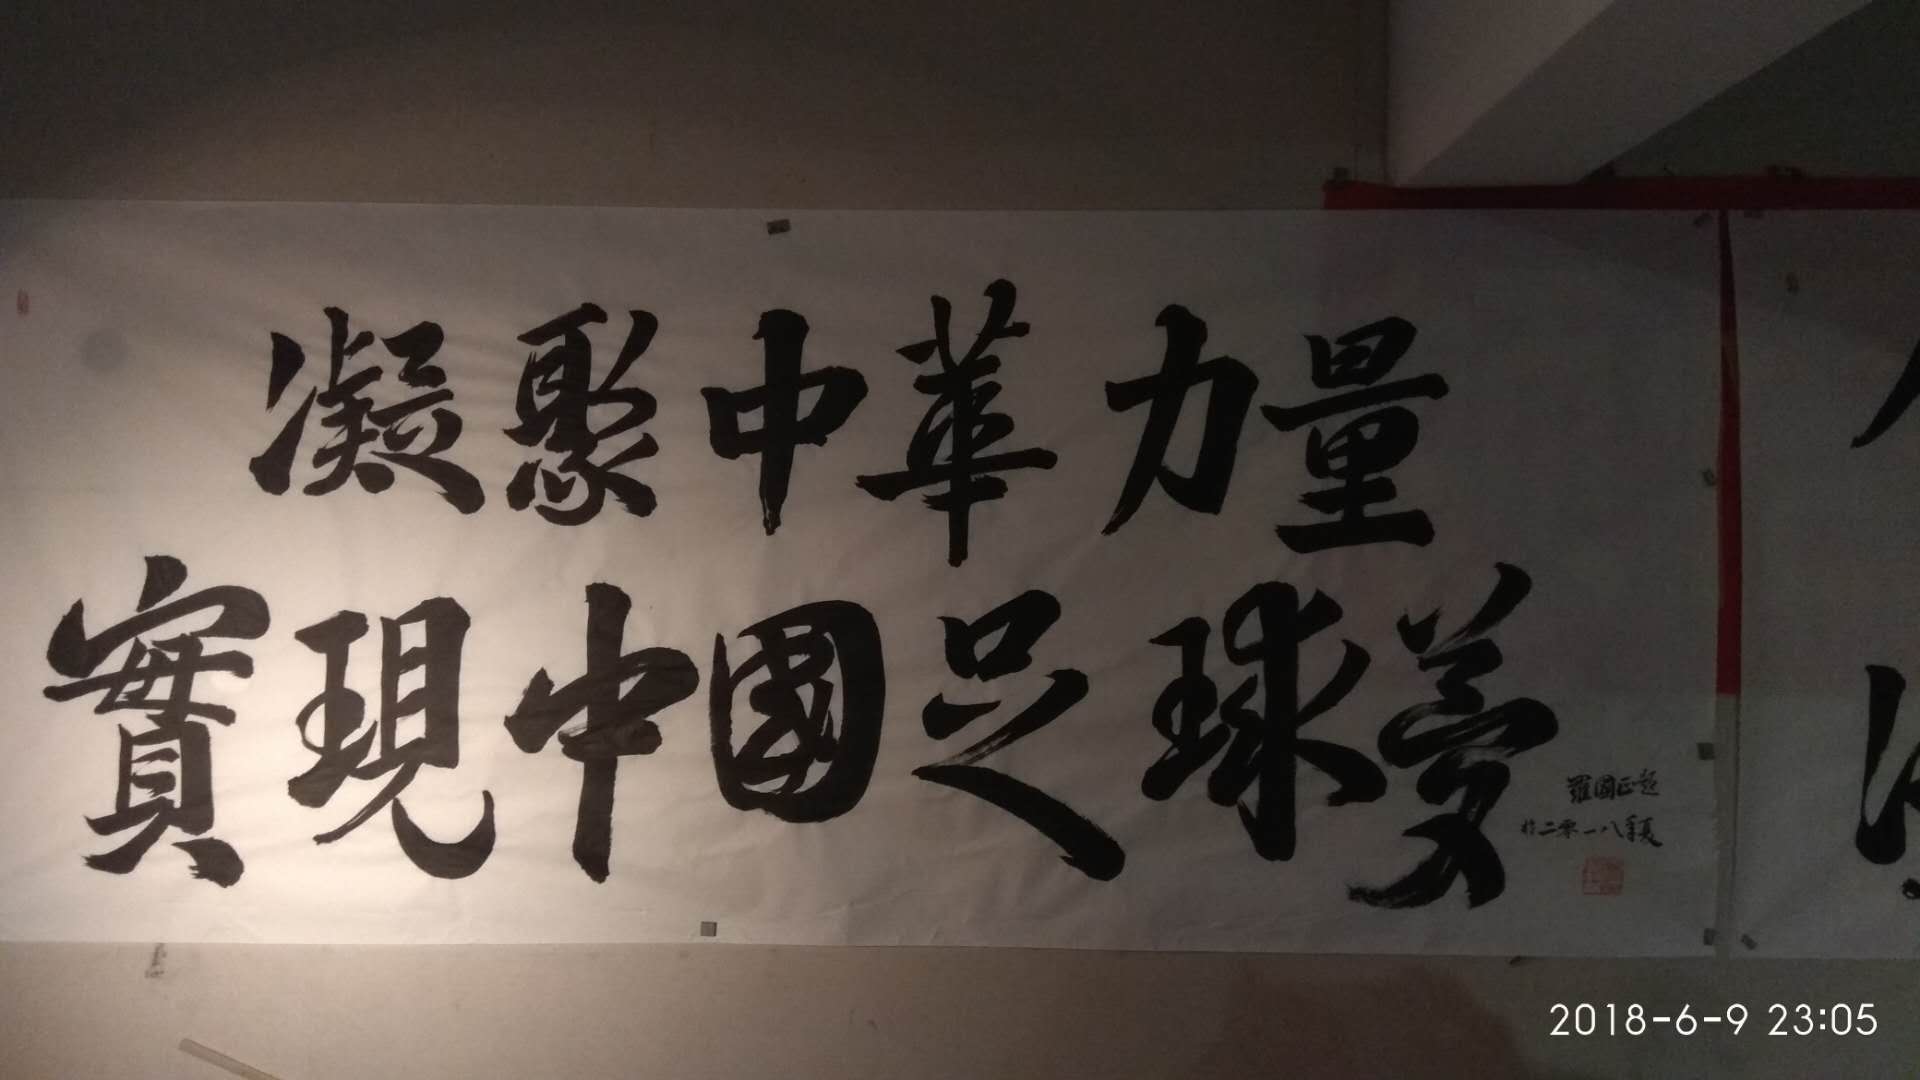 凝聚中華力量
實現中國足球夢
羅國正題
於二零一八年夏
2018-6-9 23:05